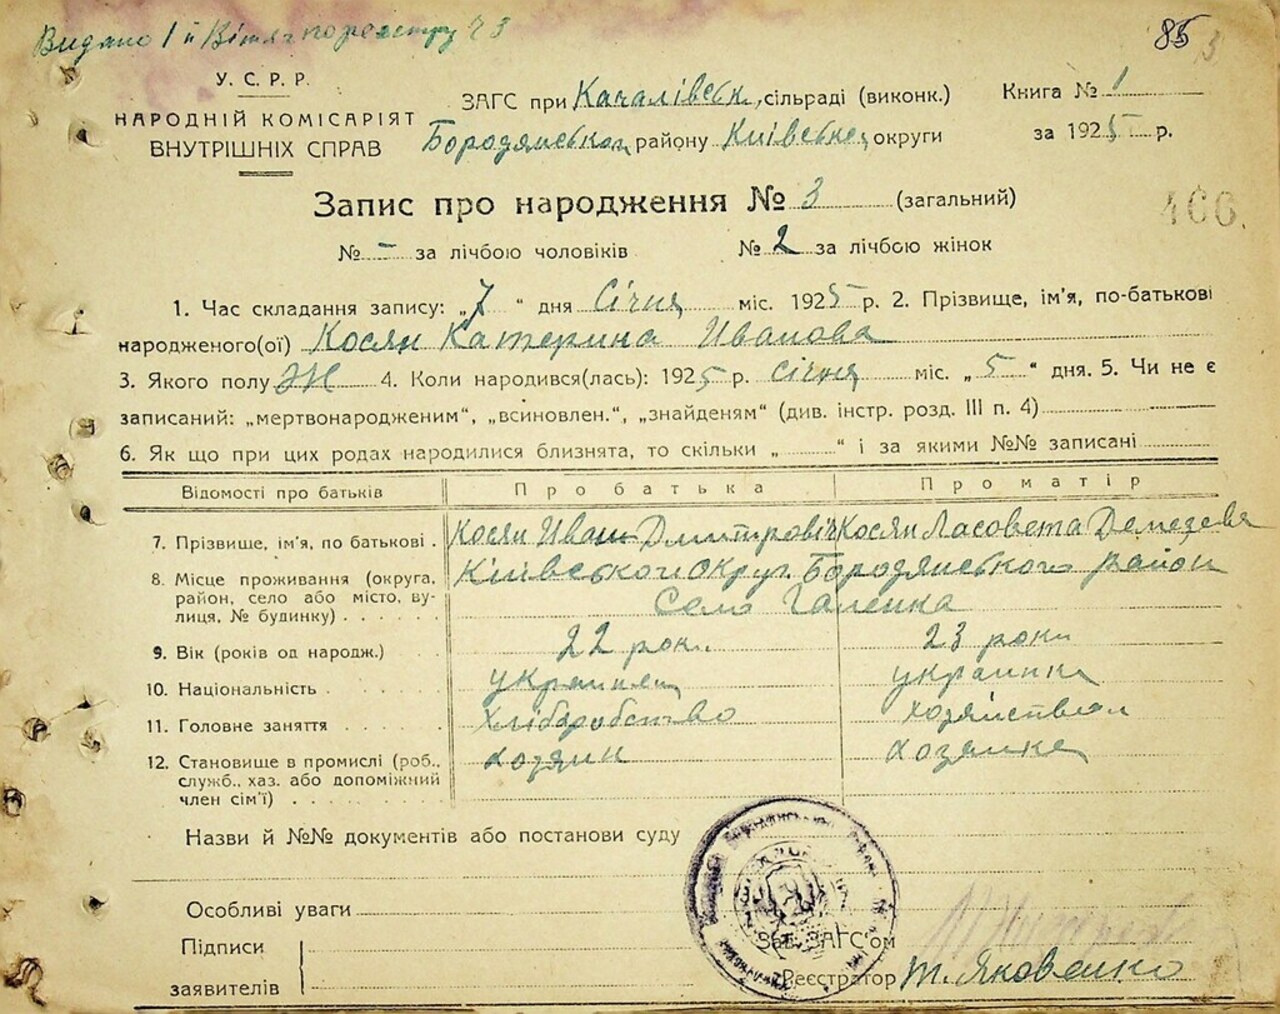 Видано 1 й Витяг по реєстру Ч 3
85
3
У. С. Р. Р.
НАРОДНІЙ КОМІСАРІЯТ
ВНУТРІШНІХ СПРАВ
ЗАГС при Качалівськ. сільраді (виконк.)
Бородянського району Київської округи
Книга № 1
за 1925 р.
Запис про народження № 3 (загальний)
466
№ – за лічбою чоловіків № 2 за лічбою жінок
1. Час складання запису: „7 “ дня Січня міс. 1925 р. 2. Прізвище, ім’я, по-батькові
народженого(ої) Косян Катерина Иванова
3. Якого полу Ж 4. Коли народився(лась): 1925 р. січня міс. „ 5 “ дня. 5. Чи не є
записаний: „мертвонародженим“, „всиновлен.“, „знайденям“ (див. інстр. розд. III п. 4)
6. Як що при цих родах народилися близнята, то скільки „ “ і за якими №№ записані
Відомості про батьків Про батька Про матір
7. Прізвище, ім’я, по батькові . Косян Иван Дмитрович Косян Ласовета
8. Місце проживання (округа, район, село або місто, вулиця, № будинку) Київського округ. Бородянського район
Село Галенка
9. Вік (років од народж.) 22 рок. 23 роки
10. Національність украинец украинка
11. Головне заняття Хліборобство хозяйством
12. Становище в промислі (роб., хозяин хозяика
служб., хаз. або допоміжний
член сім’ї)
Назви й №№ документів або постанови суду
Особливі уваги
Підписи
заявителів
Зав. ЗАГС’ом
Реєстратор Т. Яковенко